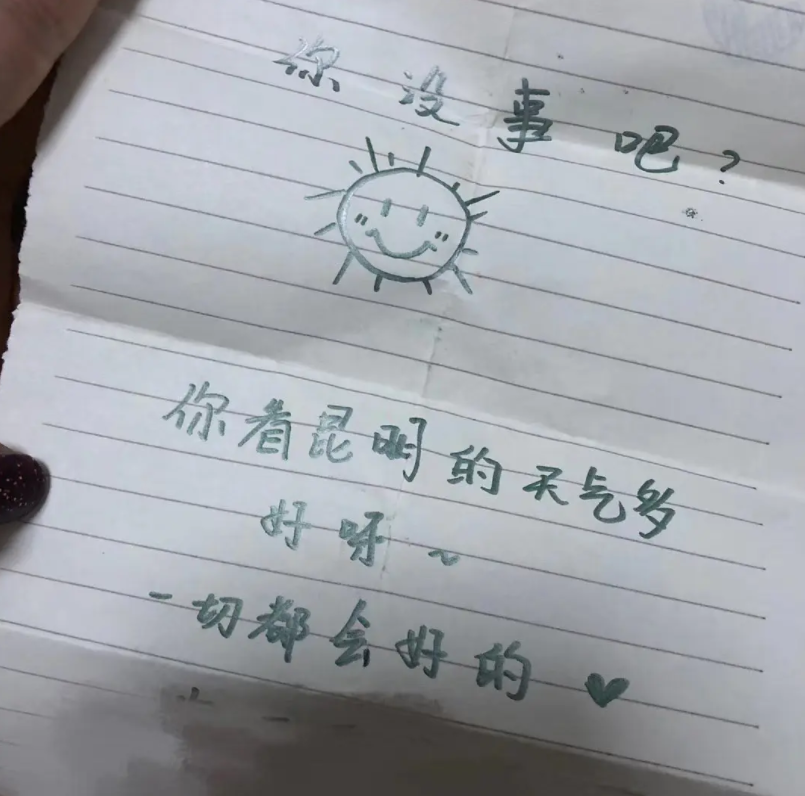 你没事吧?
你看昆明的天气多
好呀~
一切都会好的♥